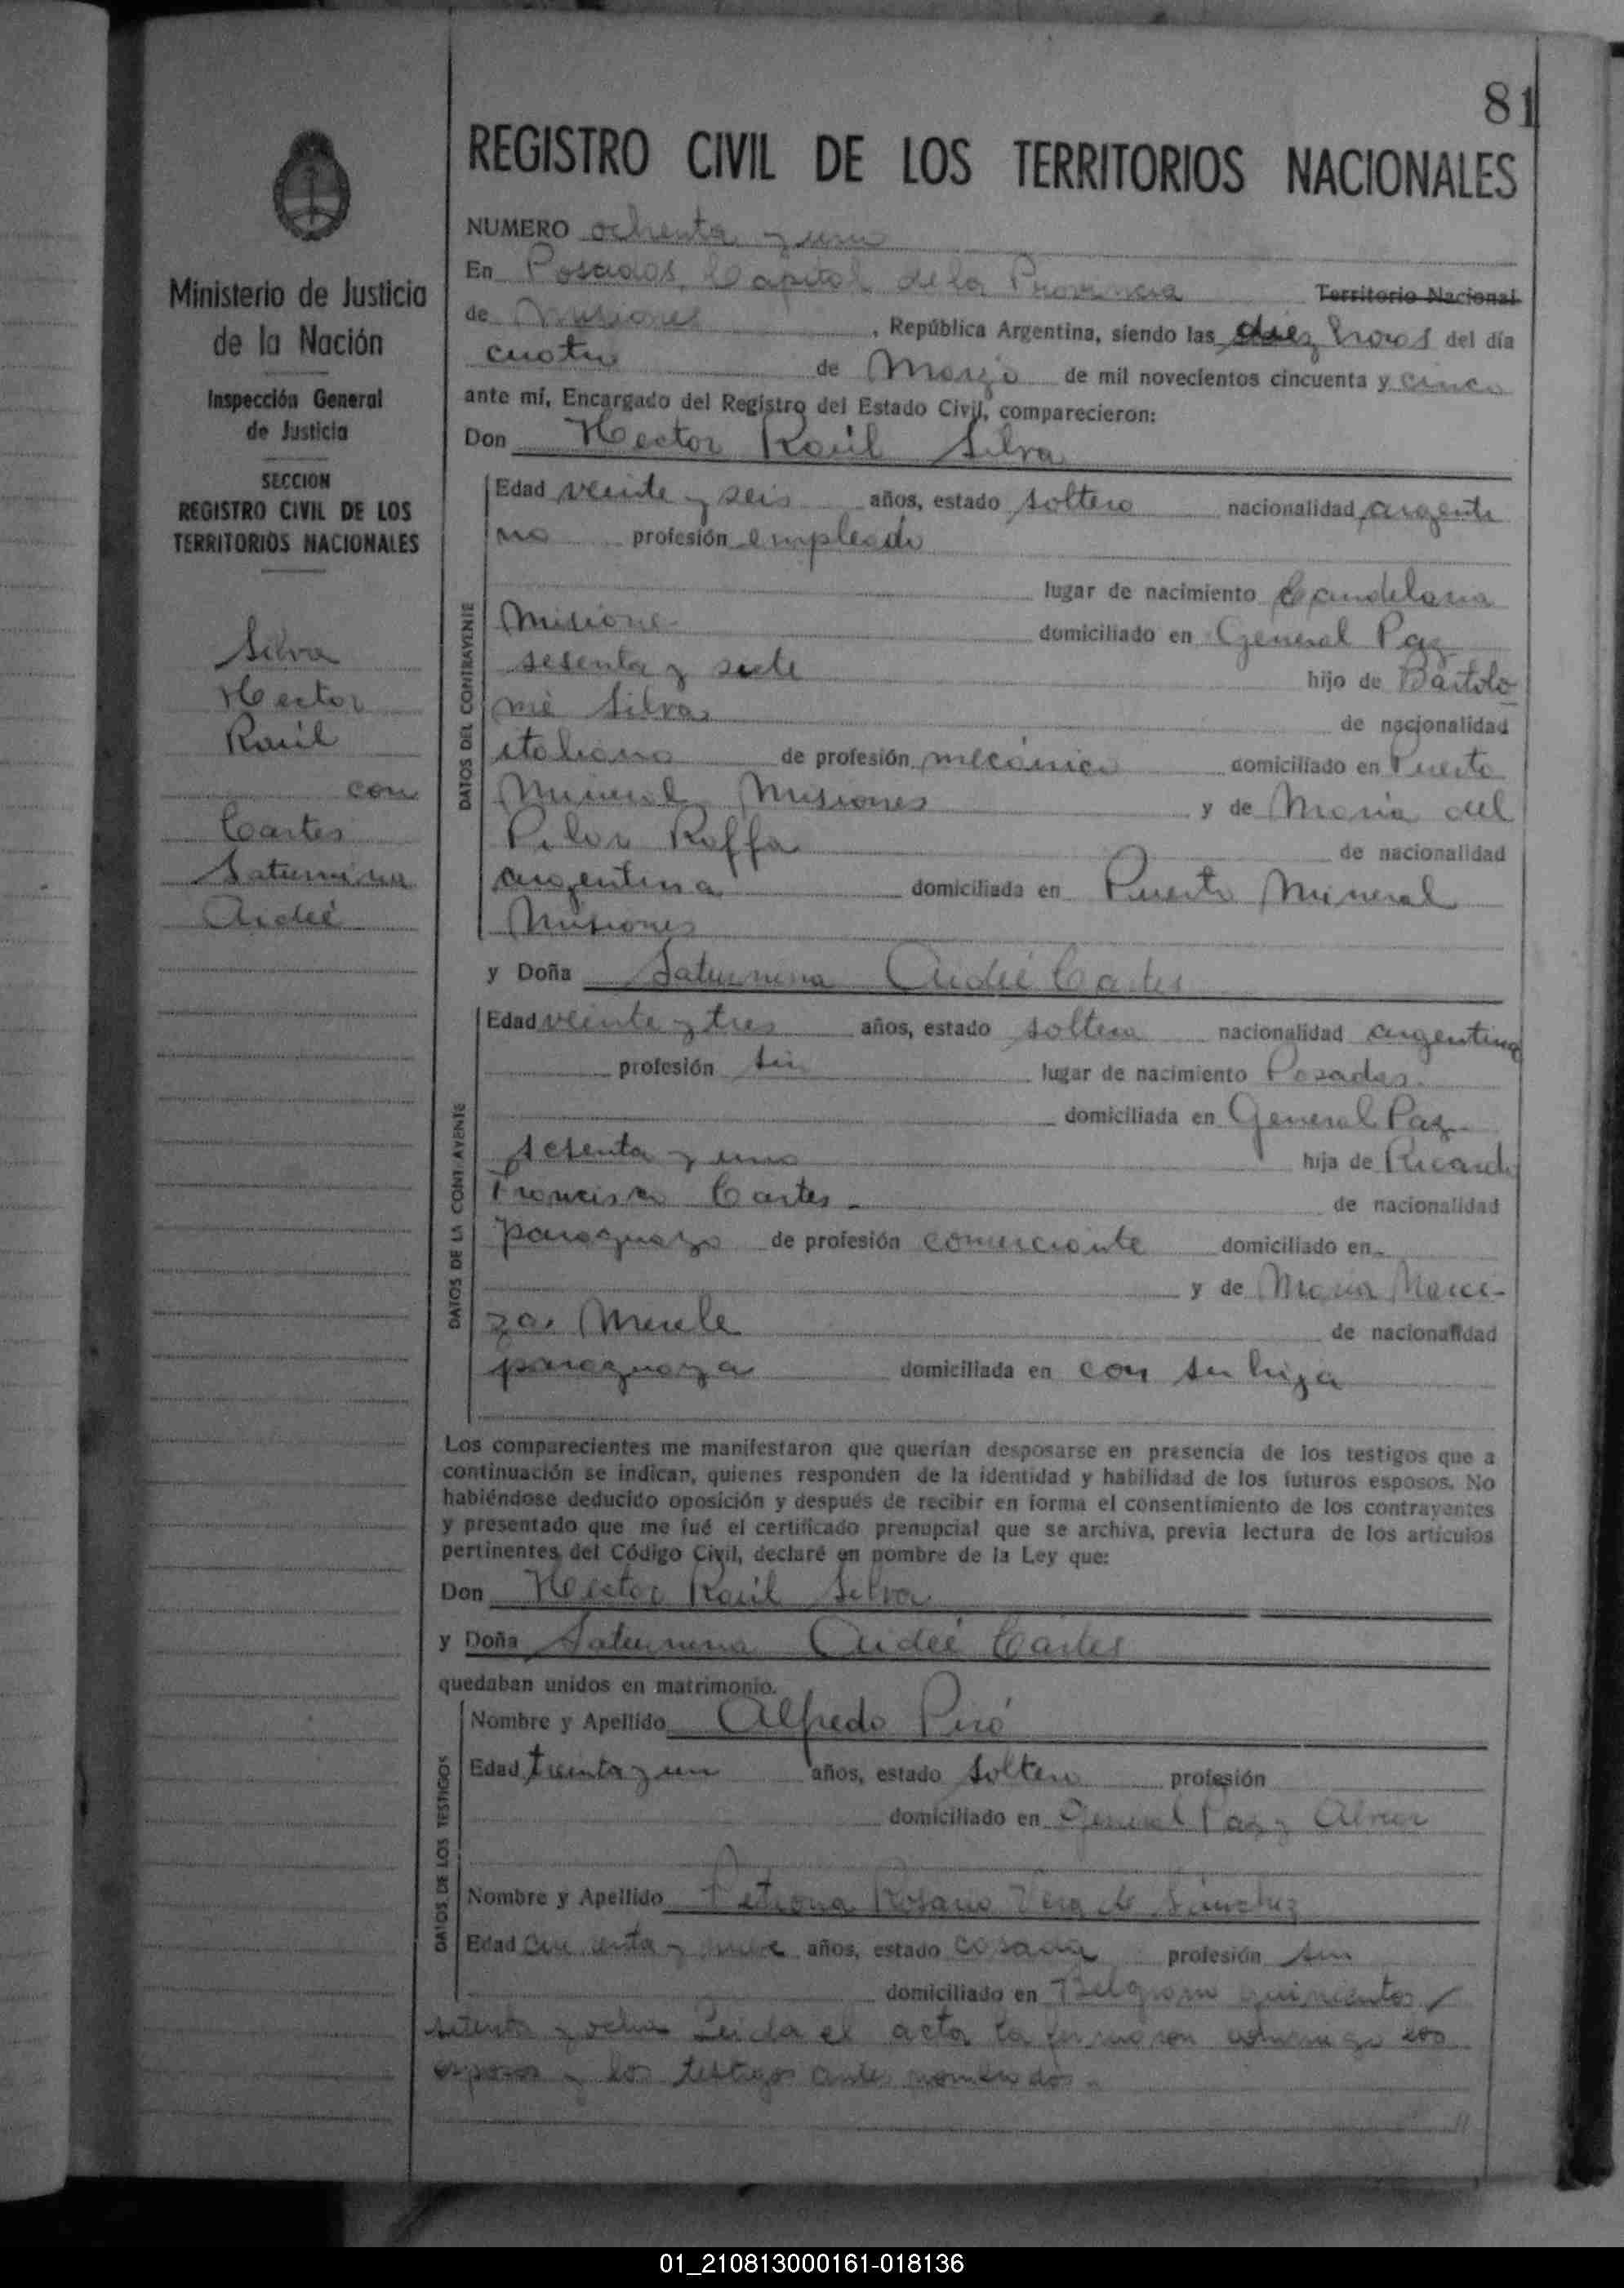 81
REGISTRO CIVIL DE LOS TERRITORIOS NACIONALES
Ministerio de Justicia
de la Nación
Inspección General
de Justicia
SECCION
REGISTRO CIVIL DE LOS
TERRITORIOS NACIONALES
Silva
Hector
Raúl
con
Cartes
Saturnina
Aideé
NUMERO ochenta y uno
En Posadas, Capital de la Provincia Territorio Nacional
de Misiones, República Argentina, siendo las diez horas del día
cuatro de Marzo de mil novecientos cincuenta y cinco
ante mí, Encargado del Registro del Estado Civil, comparecieron:
Don Hector Raúl Silva
DATOS DEL CONTRAYENTE
Edad veinte y seis años, estado soltero nacionalidad argenti
no profesión empleado
lugar de nacimiento Candelaria
Misiones domiciliado en General Paz
sesenta y siete hijo de Bartolo
mé Silva de nacionalidad
italiana de profesión mecánico domiciliado en Puerto
Mineral Misiones y de María del
Pilar Raffa de nacionalidad
argentina domiciliada en Puerto Mineral
Misiones
y Doña Saturnina Aideé Cartes
DATOS DE LA CONTRAYENTE
Edad veinte y tres años, estado soltera nacionalidad argentina
profesión sin lugar de nacimiento Posadas
domiciliada en General Paz
sesenta y uno hija de Ricardo
Francisco Cartes de nacionalidad
paraguayo de profesión comerciante domiciliado en
y de María
Merele de nacionalidad
paraguaya domiciliada en con su hija
Los comparecientes me manifestaron que querían desposarse en presencia de los testigos que a
continuación se indican, quienes responden de la identidad y habilidad de los futuros esposos. No
habiéndose deducido oposición y después de recibir en forma el consentimiento de los contrayentes
y presentado que me fué el certificado prenupcial que se archiva, previa lectura de los artículos
pertinentes del Código Civil, declaré en nombre de la Ley que:
Don Hector Raúl Silva
y Doña Saturnina Aideé Cartes
quedaban unidos en matrimonio.
DATOS DE LOS TESTIGOS
Nombre y Apellido Alfredo Piró
Edad treinta y un años, estado soltero profesión
domiciliado en General Paz y Alvear
Nombre y Apellido Petrona Rosario Vera de Sánchez
Edad años, estado casada profesión sin
domiciliado en Belgrano quinientos
setenta y ocho Leida el acta la firmaron conmigo los
esposos y los testigos antes nombrados.
01_210813000161-018136